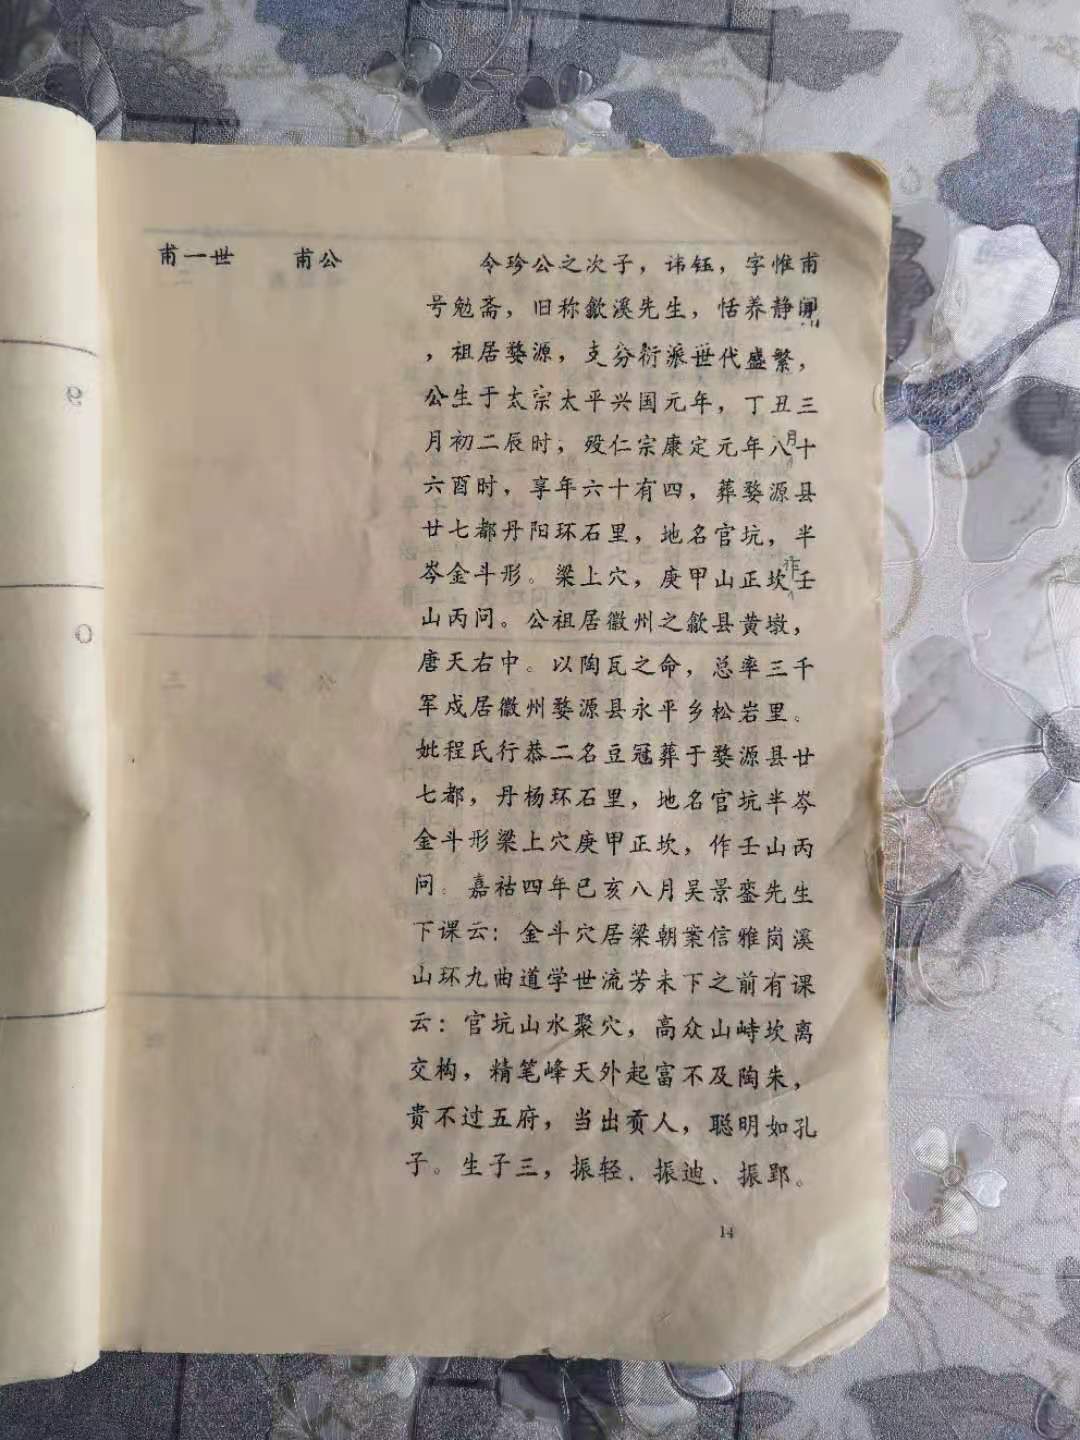 甫一世 甫公
令珍公之次子，讳钰，字惟甫
号勉斋，旧称歙溪先生，恬养静
，祖居婺源，支分衍派世代盛繁，
公生于太宗太平兴国元年，丁丑三
月初二辰时，殁仁宗康定元年八月十
六酉时，享年六十有四，葬婺源县
廿七都丹阳环石里，地名官坑，半
岺金斗形。梁上穴，庚甲山正坎作壬
山丙问。公祖居徽州之歙县黄墩，
唐天右中。以陶瓦之命，总率三千
军戍居徽州婺源县永平乡松岩里。
妣程氏行恭二名豆冠葬于婺源县廿
七都，丹杨环石里，地名官坑半岺
金斗形梁上穴庚甲正坎，作壬山丙
问。嘉祜四年已亥八月吴景銮先生
下课云：金斗穴居梁朝案信雅岗溪
山环九曲道学世流芳未下之前有课
云：官坑山水聚穴，高众山峙坎离
交构，精笔峰天外起富不及陶朱，
贵不过五府，当出贡人，聪明如孔
子。生子三，振轻、振迪、振郢。
14
9
0